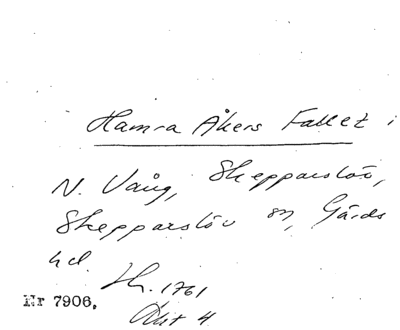 Hamra Åkers Fallet i
N. Vång, Skepparslöv,
Skepparslöv sn, Gärds
hd. Sk. 1761
Nr 7906. Akt 4